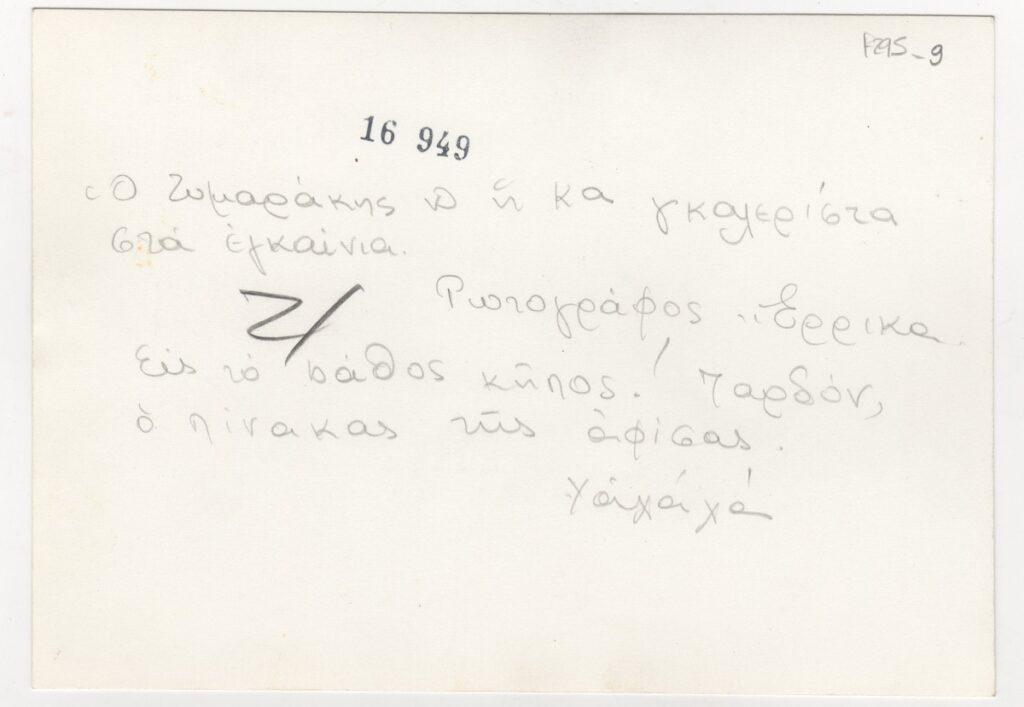 F295-9
16 949
Ὁ Ζυμαράκης ἢ κα γκαλερίστα
στά ἐγκαίνια.
Φωτογράφος "Ἑρρικα
Εἰς τό βάθος κῆπος! Παρδόν,
ὁ πίνακας τῆς ἀφίσας.
Χάχάχά